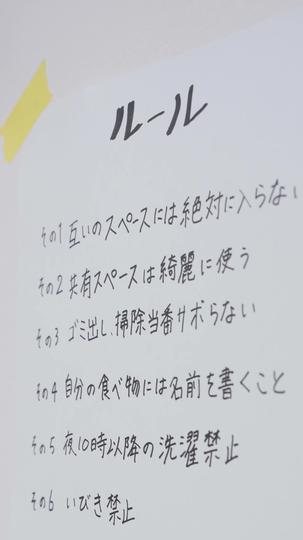 ルール
その1 互いのスペースには絶対に入らない
その2 共有スペースは綺麗に使う
その3 ゴミ出し、掃除当番サボらない
その4 自分の食べ物には名前を書くこと
その5 夜10時以降の洗濯禁止
その6 いびき禁止